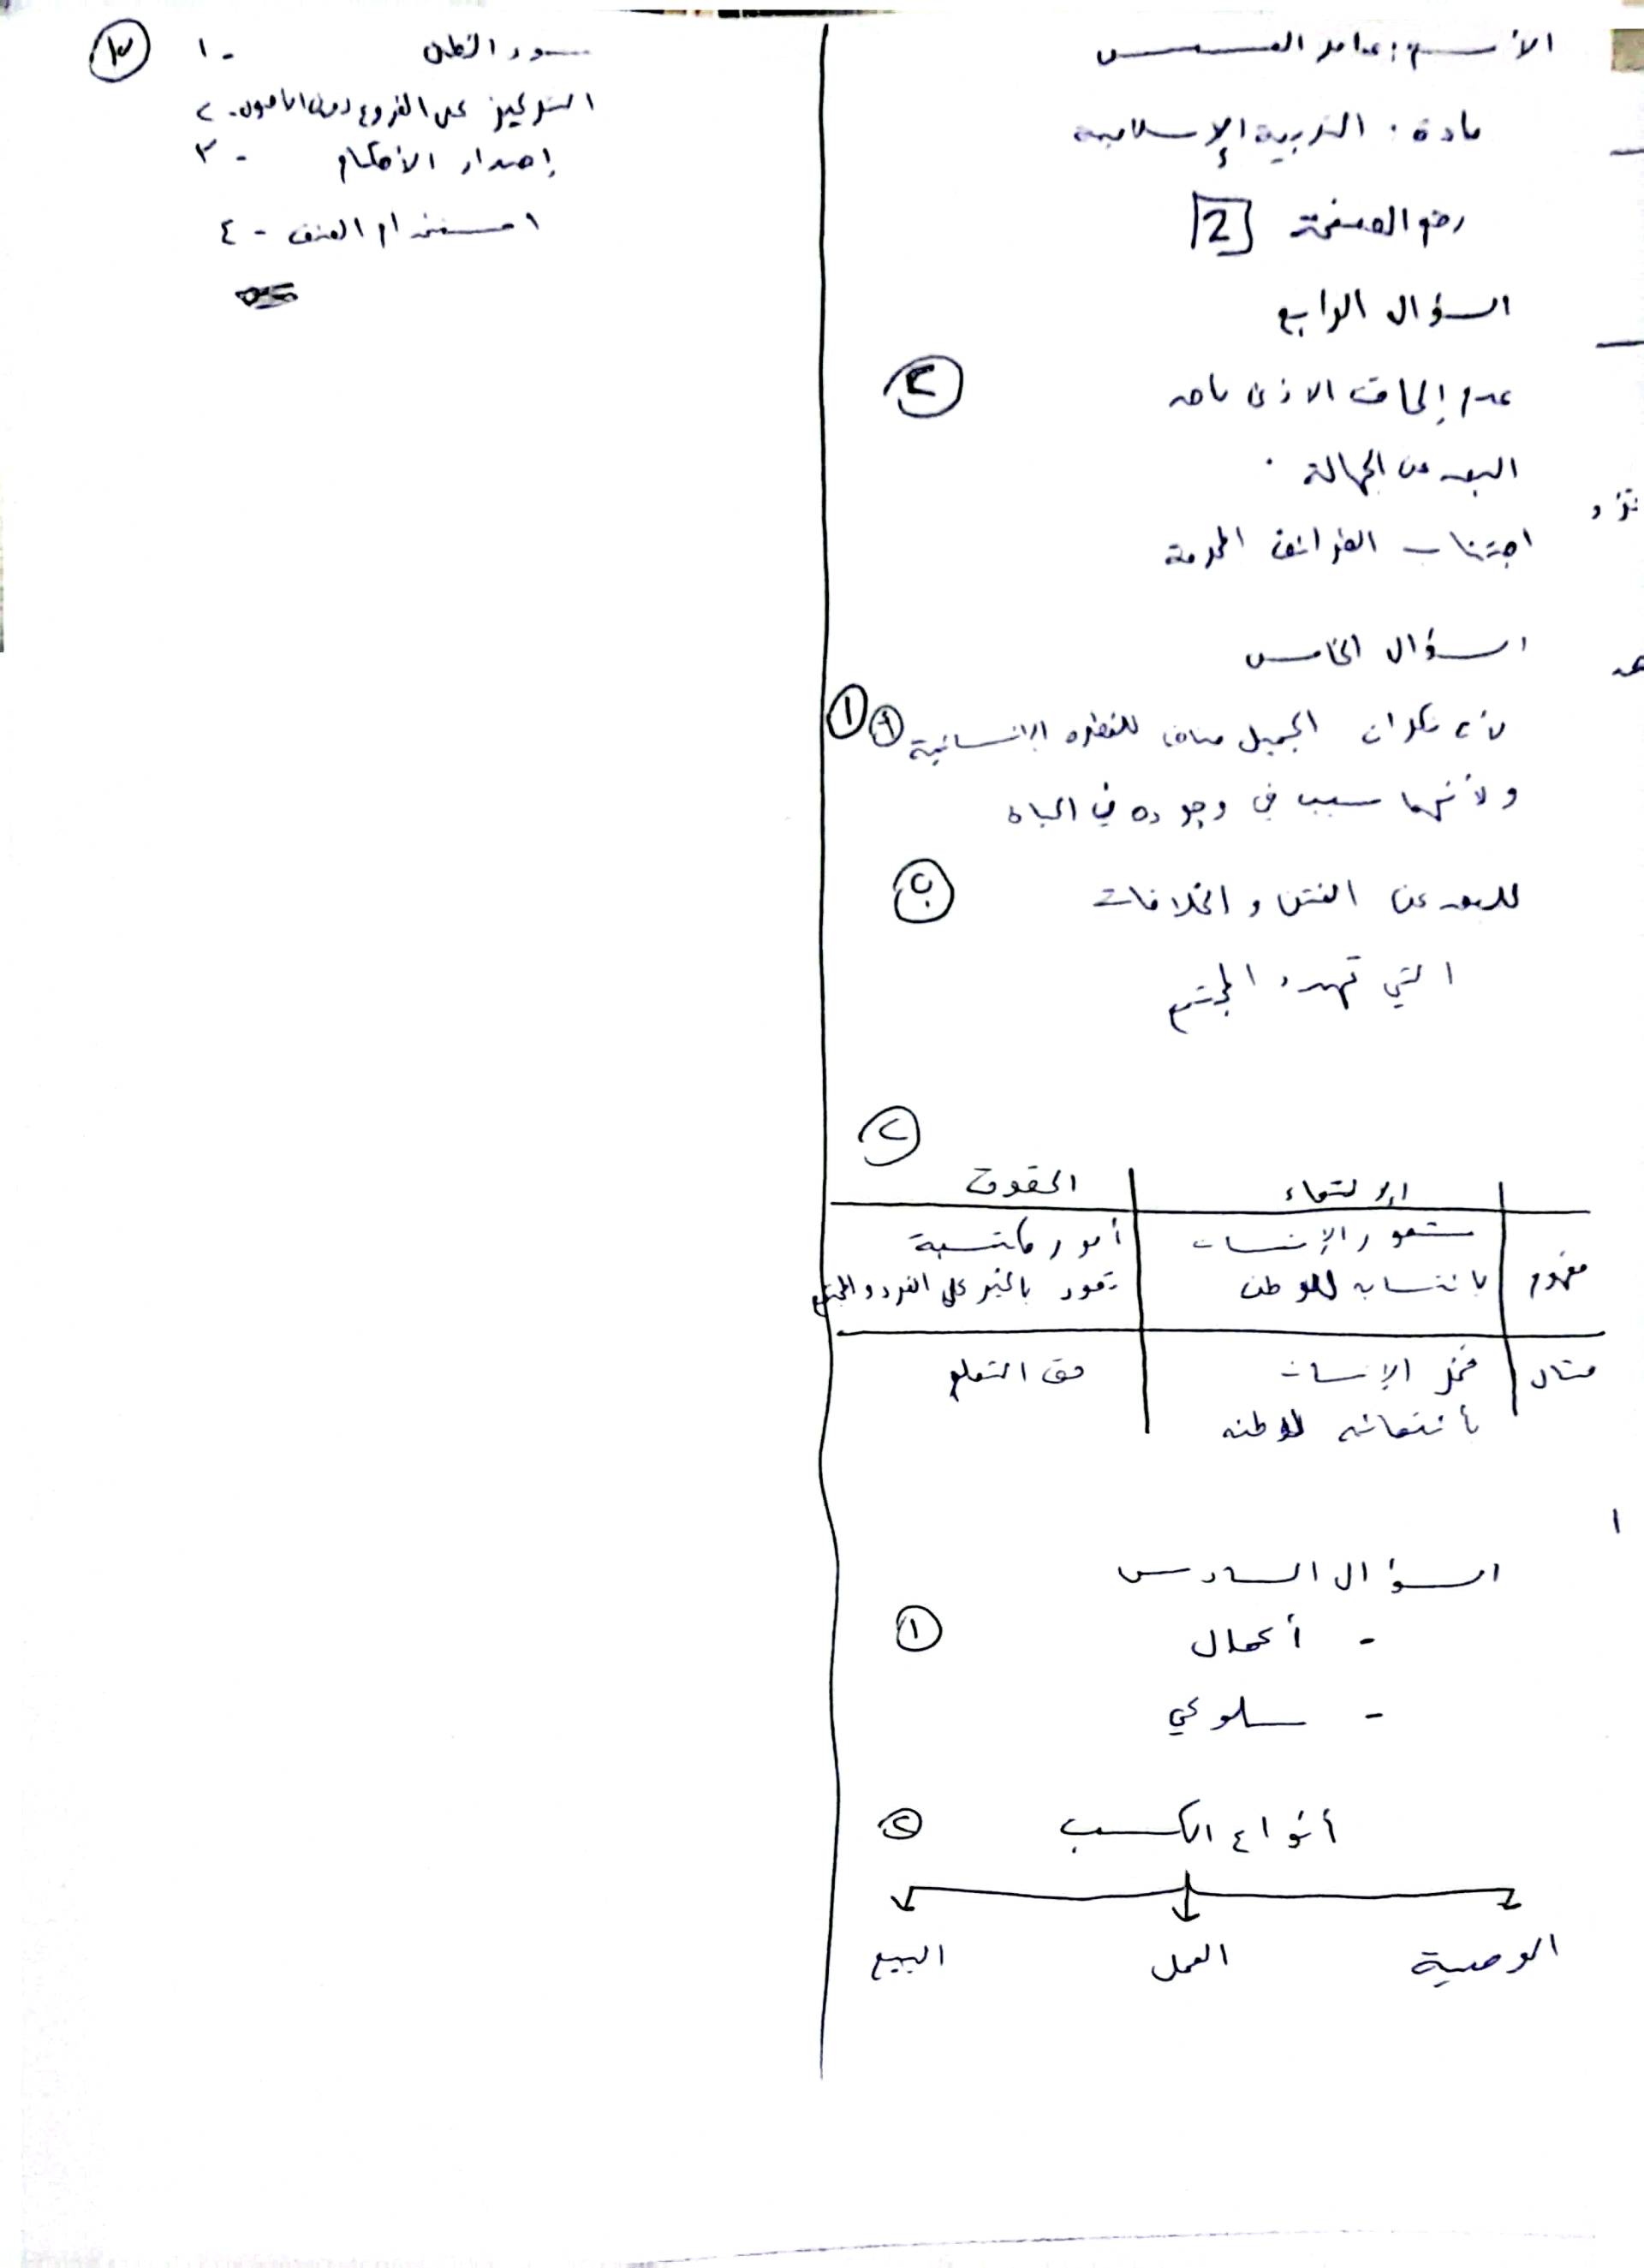 الأسم : عامر
مادة : التربية الإسلامية
رقم الصفحة 2
السؤال الرابع
عدم إلحاق الاذى باحد ٣
البعد عن الجهالة .
اجتناب الظرائف المحرمة
السؤال الخامس
لأن نكران الجميل مناف للفطره الإنسانية أ ١
ولأنهما سبب في وجوده في الحياه
للبعد عن الفتن و الخلافات ب
التي تهدد المجتمع
٢
الإنتماء الحقوق
مفهوم شعور الإنسان أمور مكتسبة
بانتسابه للوطن تعود بالخير على الفرد والمجتمع
مثال فخر الإنسان حق التعلم
بأنتمائه لوطنه
السؤال السادس
- أعمال ١
- سلوكي
أنواع الكسب ٢
الوصية العمل البيع
٣
١ - سوء الظن
٢ - التركيز على الفروع دون الاصول
٣ - إصدار الأحكام
٤ - استخدام العنف